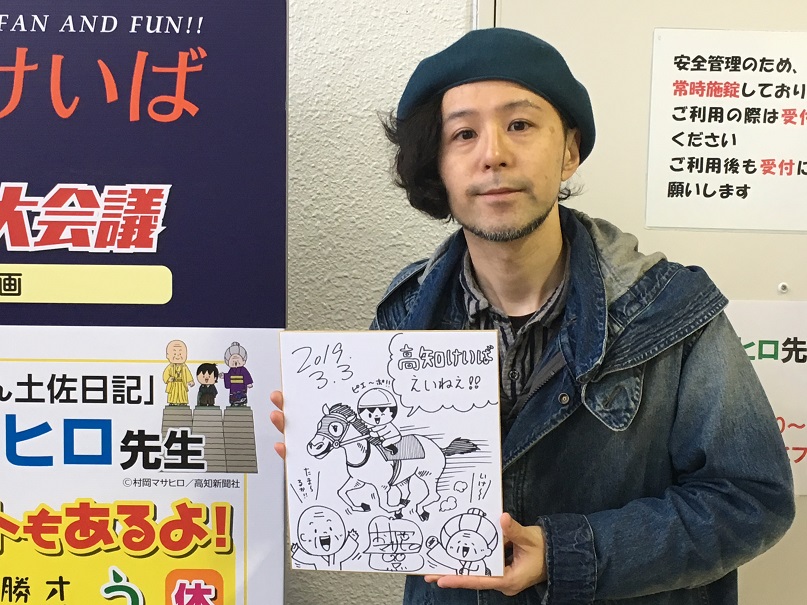 FAN AND FUN!!
けいば
大会議
画
ん土佐日記」
ヒロ先生
©村岡マサヒロ／高知新聞社
トもあるよ!
勝オ
う
休
安全管理のため、
常時施錠しており
ご利用の際は受付
ください
ご利用後も受付に
願いします
ヒロ先
2019.
3.3
高知けいば
えいねえ!!
ピエ〜ポ!!
たまるか!!
いけ〜